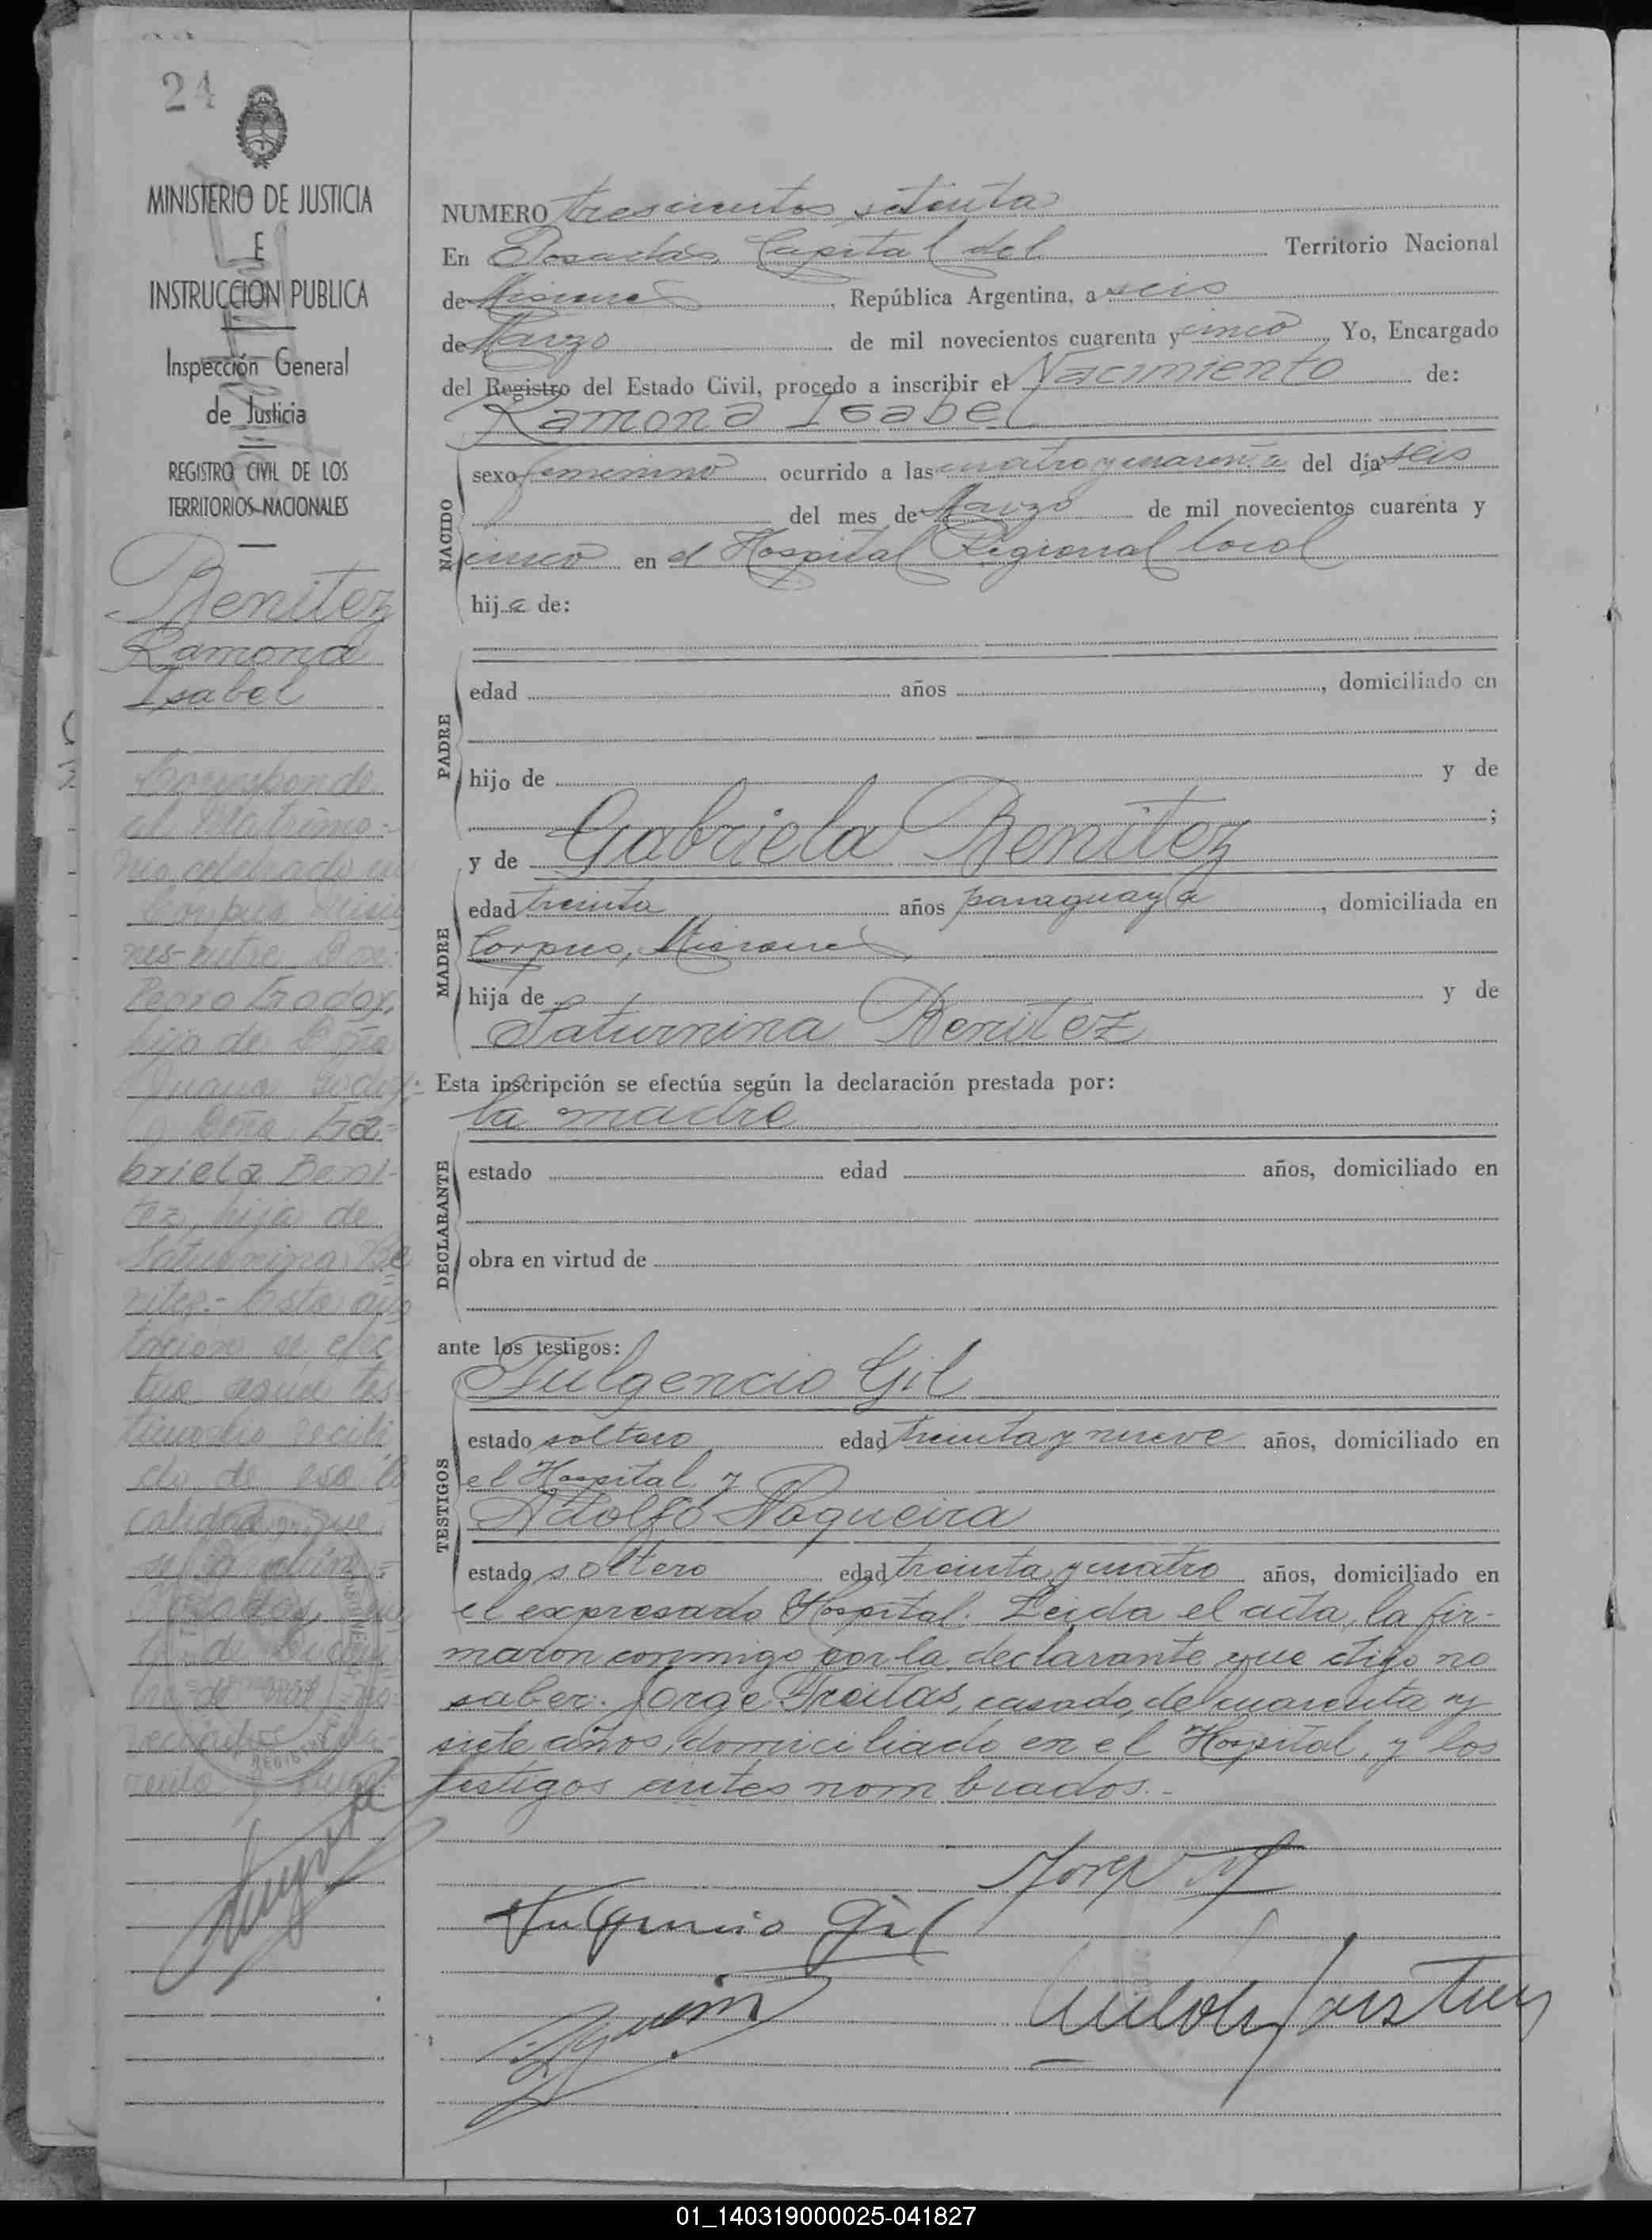 24
MINISTERIO DE JUSTICIA
E
INSTRUCCION PUBLICA
Inspección General
de Justicia
REGISTRO CIVIL DE LOS
TERRITORIOS NACIONALES
Benitez
Ramona
Isabel
Corresponde
al Matrimo-
nio celebrado en
Corpus Misio
nes entre Don
Pedro Godoy,
hijo de Doña
Juana Godoy
y Doña Ga-
briela Beni-
tez, hija de
Saturnina Be
nitez.- Esta ano
tacion se efec
tua segun tes-
timonio recibi
do de esa lo
calidad que
de
de mil no-
vecientos cua-
renta y
NUMERO trescientos setenta
En Posadas, Capital del Territorio Nacional
de Misiones, República Argentina, a seis
de Marzo de mil novecientos cuarenta y cinco Yo, Encargado
del Registro del Estado Civil, procedo a inscribir el Nacimiento de:
Ramona Isabel
NACIDO
sexo femenino ocurrido a las cuatro y cuarenta del día seis
del mes de Marzo de mil novecientos cuarenta y
cinco en el Hospital Regional local
hija de:
PADRE
edad años , domiciliado en
hijo de y de
;
y de Gabriela Benitez
MADRE
edad treinta años paraguaya, domiciliada en
Corpus, Misiones
hija de y de
Saturnina Benitez
Esta inscripción se efectúa según la declaración prestada por:
la madre
DECLARANTE
estado edad años, domiciliado en
obra en virtud de
ante los testigos:
Fulgencio Gil
TESTIGOS
estado soltero edad treinta y nueve años, domiciliado en
el Hospital y
Adolfo Noqueira
estado soltero edad treinta y cuatro años, domiciliado en
el expresado Hospital. Leida el acta, la fir-
maron conmigo por la declarante que dijo no
saber: Jorge Freitas, casado, de cuarenta y
siete años, domiciliado en el Hospital, y los
testigos antes nombrados.-
Jorge
Fulgencio Gil
01_140319000025-041827